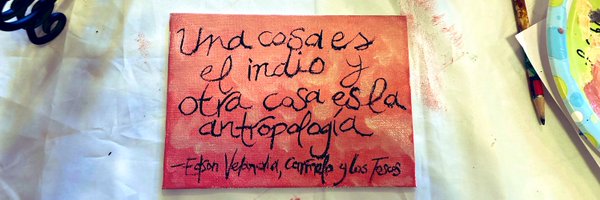 Una cosa es
el indio y
otra cosa es la
antropología
—Edson Velandia, Carmelo y Los Tesos